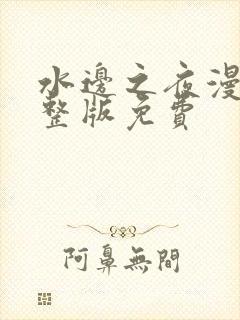 水邊之夜漫
整版免費
阿鼻無間